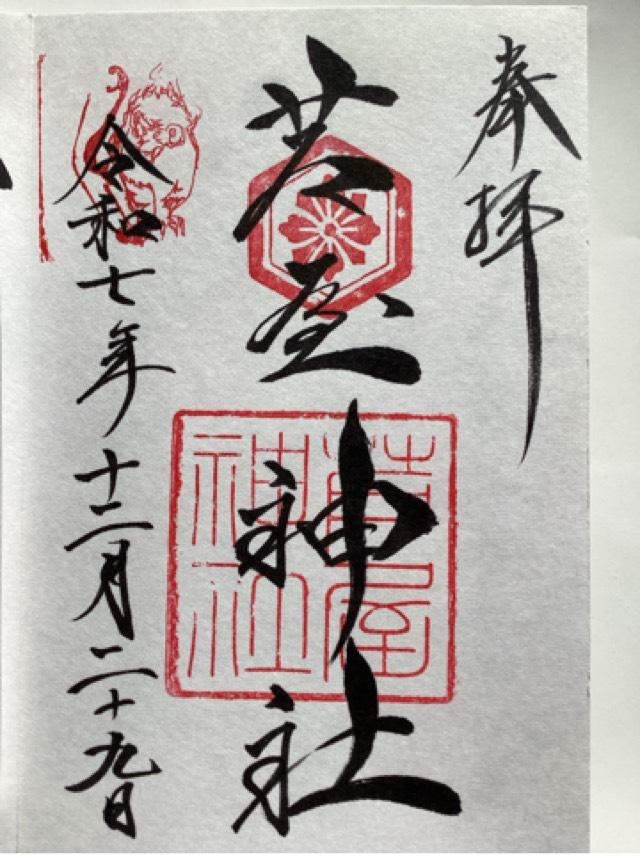 奉拝
芦屋神社
芦屋
神社
令和七年十二月二十九日